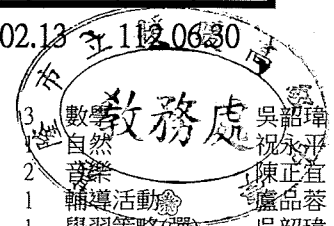 02.13 112.06.30
市立
高
隆
教務處
3 數學 吳韶瑋
自然 祝永平
2 音樂 陳正宜
1 輔導活動 盧品蓉
1 學習策略(選) 吳韶瑋